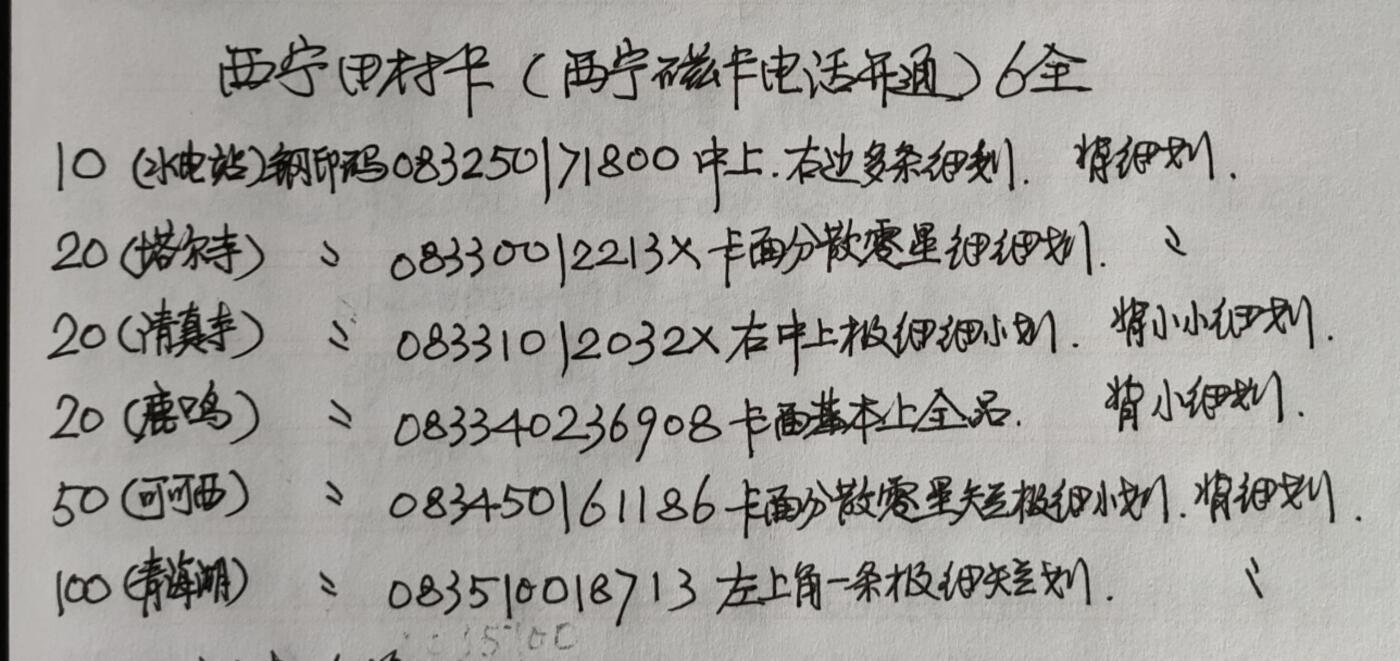 西宁田村卡(西宁磁卡电话开通)6全
10(水电站)钢印码083250171800中上.右边多条细划. 背细划.
20(塔尔寺) 〃 08330012213X卡面分散零星细细划. 〃
20(清真寺) 〃 08331012032X右中上极细细小划. 背小小细划.
20(鹿鸣) 〃 083340236908卡面基本上全品. 背小细划.
50(可可西) 〃 083450161186卡面分散零星短极细小划.背细划.
100(青海湖) 〃 083510018713左上角一条极细短划. 〃